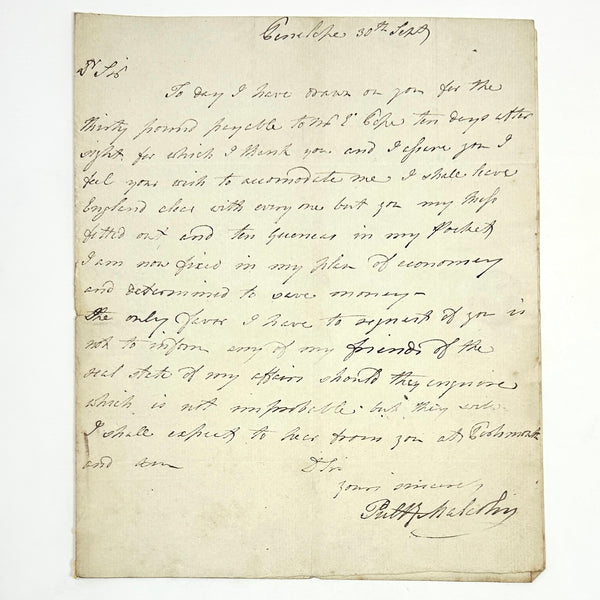 Penelope 30th Septr
Dr Sir
To day I have drawn on you for the
thirty pound payable to Mr Cope ten days after
sight, for which I thank you and I assure you I
feel your wish to accomodate me I shall have
England clear with every one but you my Mess
fitted out, and ten Guineas in my Pocket
I am now fixed in my plan of economy
and determined to save money-
The only favor I have to request of you is
not to inform any of my friends of the
real state of my affairs should they enquire
which is not improbable but they will
I shall expect to hear from you at
and am Dr Sir
yours sincerely
Pulty Malcolm